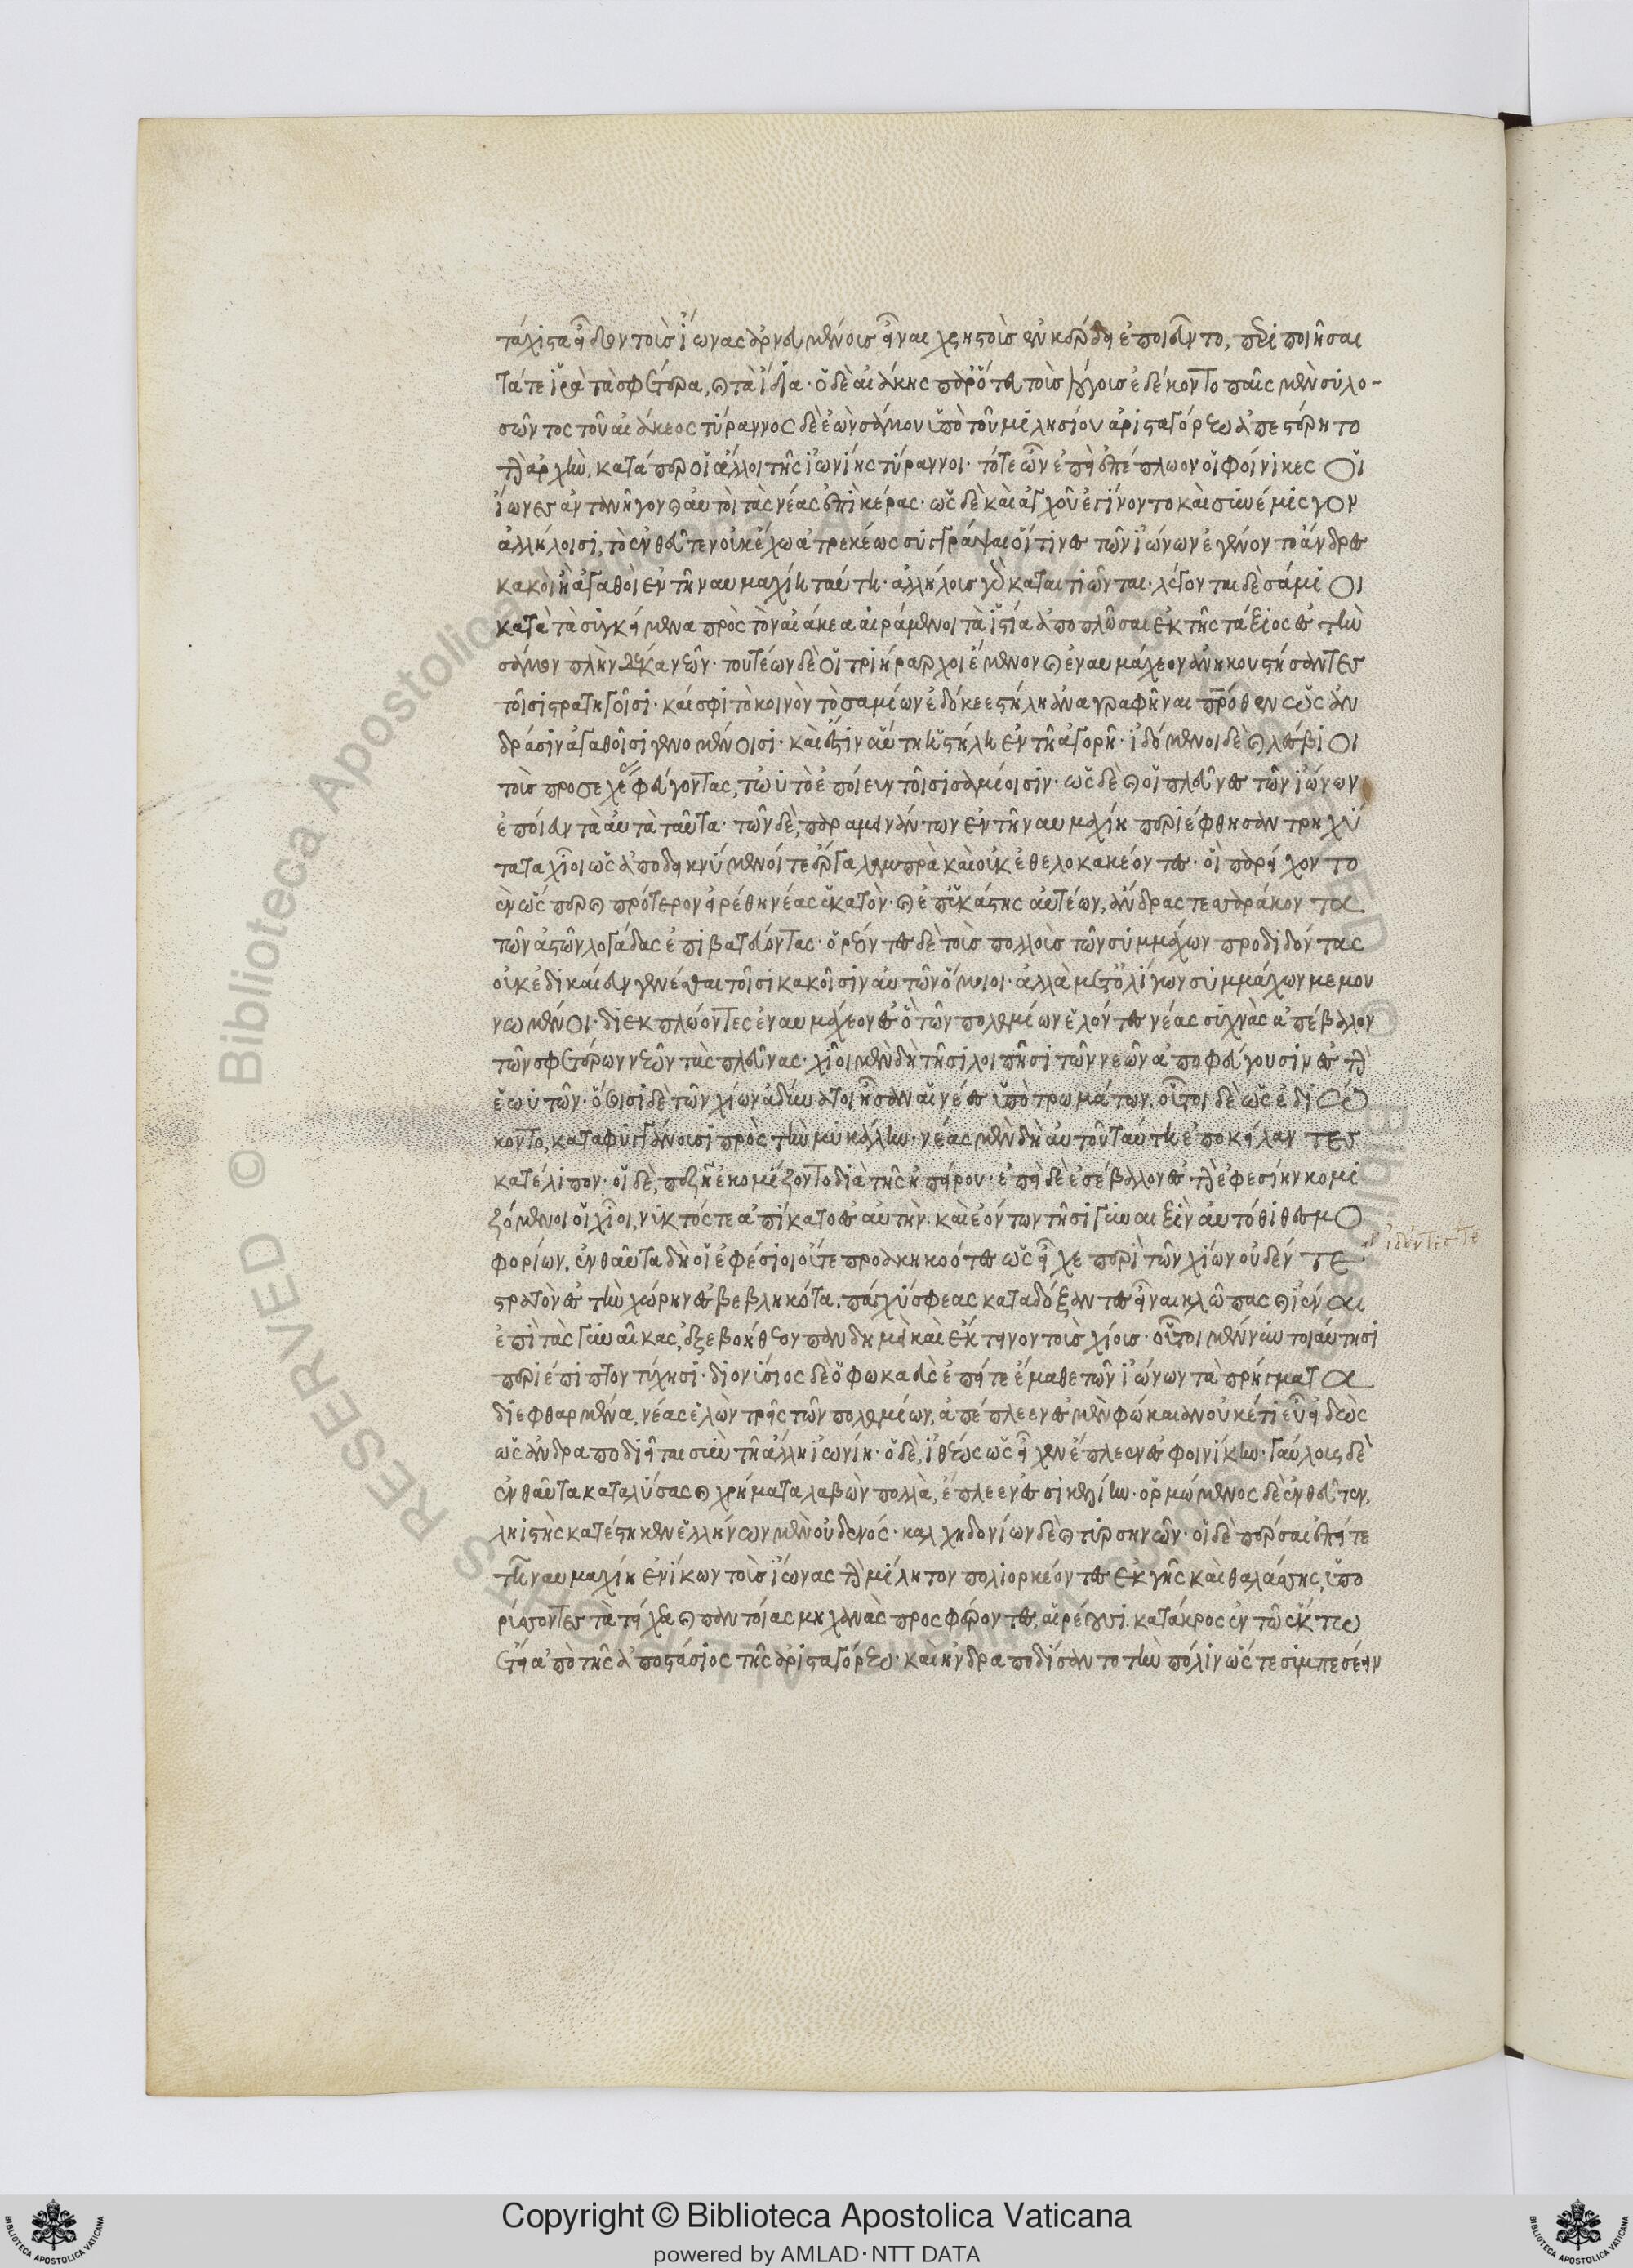 τάχιστα εἶδον τοὺς ἴωνας ἀρνευμένους εἶναι χρηστοὺς ἐν κέρδει ἐποιεῦντο, περιποιῆσαι
τά τε ἱρὰ τὰ σφέτερα, καὶ τὰ ἴδια· ὁ δὲ αἰάκης παρ' ὅτευ τοὺς λόγους ἐδέκοντο παῖς μὲν συλο-
σῶντος τοῦ αἰάκεος τύραννος δὲ ἐὼν σάμου ὑπὸ τοῦ μιλησίου ἀρισταγόρεω ἀπεστέρητο
τὴν ἀρχὴν, κατάπερ οἱ ἄλλοι τῆς ἰωνίης τύραννοι· τότε ὦν ἐπεὶ ἐπέπλωον οἱ φοίνικες οἱ
ἴωνες ἀντανῆγον καὶ αὐτοὶ τὰς νέας ἐπὶ κέρας· ὡς δὲ καὶ ἀγχοῦ ἐγίνοντο καὶ συνέμισγον
ἀλλήλοισι, τὸ ἐνθεῦτεν οὐκ ἔχω ἀτρεκέως συγγράψαι οἵτινες τῶν ἰώνων ἐγένοντο ἄνδρες
κακοὶ ἢ ἀγαθοὶ ἐν τῇ ναυμαχίῃ ταύτῃ· ἀλλήλους γὰρ καταιτιῶνται· λέγονται δὲ σάμιοι
κατὰ τὰ συγκείμενα πρὸς τὸν αἰάκεα ἀειράμενοι τὰ ἱστία ἀποπλῶσαι ἐκ τῆς τάξιος ἐς τὴν
σάμον πλὴν ἕνδεκα νεῶν· τουτέων δὲ οἱ τριήραρχοι ἔμενον καὶ ἐναυμάχεον ἀνηκουστήσαντες
τοῖσι στρατηγοῖσι· καί σφι τὸ κοινὸν τὸ σαμίων ἔδωκε ἐς στήλη ἀναγραφῆναι πατρόθεν ὡς ἀν
δράσιν ἀγαθοῖσι γενομένοισι· καὶ ἔστιν αὕτη ἡ στήλη ἐν τῇ ἀγορῇ· ἰδόμενοι δὲ καὶ λέσβιοι
τοὺς προσεχέας φεύγοντας, τὠυτὸ ἐποίευν τοῖσι σαμίοισιν· ὡς δὲ καὶ οἱ πλεῦνες τῶν ἰώνων
ἐποίευν τὰ αὐτὰ ταῦτα· τῶν δὲ, παραμεινάντων ἐν τῇ ναυμαχίῃ περιέφθησαν τρηχύ
τατα χῖοι ὡς ἀποδεικνύμενοί τε ἔργα λαμπρὰ καὶ οὐκ ἐθελοκακέοντες· οἳ παρείχοντο
ὥσπερ καὶ πρότερον εἰρέθη νέας ἑκατὸν· καὶ ἐπ' ἑκάστης αὐτέων, ἄνδρας τεσσεράκοντα
τῶν ἀστῶν λογάδας ἐπιβατεύοντας· ὁρέοντες δὲ τοὺς πολλοὺς τῶν συμμάχων προδιδόντας
οὐκ ἐδικαίευν γενέσθαι τοῖσι κακοῖσιν αὐτῶν ὅμοιοι· ἀλλὰ μετ' ὀλίγων συμμάχων μεμου
νωμένοι· διεκπλώοντες ἐναυμάχεον ἐς ὃ τῶν πολεμίων ἑλόντες νέας συχνὰς ἀπέβαλον
τῶν σφετέρων νεῶν τὰς πλεῦνας· χῖοι μὲν δὴ τῇσι λοιπῇσι τῶν νεῶν ἀποφεύγουσιν ἐς τὴν
ἑωυτῶν· ὅσοισι δὲ τῶν χίων ἀδύνατοι ἦσαν αἱ νέες ὑπὸ τρωμάτων, οὗτοι δὲ ὡς ἐδιώ
κοντο, καταφυγγάνουσι πρὸς τὴν μυκάλην· νέας μὲν δὴ αὐτοῦ ταύτῃ ἐποκείλαντες
κατέλιπον· οἱ δὲ, πεζῇ ἐκομίζοντο διὰ τῆς ἠπείρου· ἐπεὶ δὲ ἐσέβαλον ἐς τὴν ἐφεσίην κομι
ζόμενοι οἱ χῖοι, νυκτός τε ἀπίκατο ἐς αὐτὴν· καὶ ἐόντων τῇσι γυναιξὶν αὐτόθι θεσμο
φορίων, ἐνθαῦτα δὴ οἱ ἐφέσιοι οὔτε προακηκοότες ὡς εἶχε περὶ τῶν χίων οὐδέν τε
ἰδόντες τε
στρατὸν ἐς τὴν χώρην ἐσβεβληκότα, πάγχυ σφεας καταδόξαντες εἶναι κλῶπας καὶ ἰέναι
ἐπὶ τὰς γυναῖκας, ἐξεβοήθεον πανδημὰ καὶ ἔκτεινον τοὺς χίους· οὗτοι μέν νυν τοιαύτῃσι
περιέπιπτον τύχῃσι· διονύσιος δὲ ὁ φωκαεὺς ἐπεί τε ἔμαθε τῶν ἰώνων τὰ πρήγματα
διεφθαρμένα, νέας ἑλὼν τρεῖς τῶν πολεμίων, ἀπέπλεεν ἐς μὲν φώκαιαν οὐκέτι εὖ εἰδὼς
ὡς ἀνδραποδιεῖται σὺν τῇ ἄλλῃ ἰωνίῃ· ὁ δὲ, ἰθέως ὡς εἶχεν ἔπλεεν ἐς φοινίκην· γαύλους δὲ
ἐνθαῦτα καταλύσας καὶ χρήματα λαβὼν πολλὰ, ἔπλεεν ἐς σικελίην· ὁρμώμενος δὲ ἐνθεῦτεν,
ληιστὴς κατέστηκεν ἑλλήνων μὲν οὐδενός· καλχηδονίων δὲ καὶ τυρσηνῶν· οἱ δὲ πέρσαι ἐπεί τε
τῇ ναυμαχίῃ ἐνίκων τοὺς ἴωνας τὴν μίλητον πολιορκέοντες ἐκ γῆς καὶ θαλάσσης, ὑπο
ρύσσοντες τὰ τείχεα καὶ παντοίας μηχανὰς προσφέροντες, αἱρέουσι κατάκρος ἐν τῷ ἕκτῳ
ἔτεϊ ἀπὸ τῆς ἀποστάσιος τῆς ἀρισταγόρεω· καὶ ἠνδραποδίσαντο τὴν πόλιν ὥστε συμπεσέειν
Copyright © Biblioteca Apostolica Vaticana
powered by AMLAD·NTT DATA